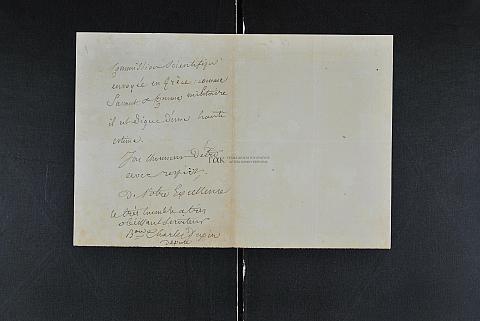 Commission Scientifique
envoyée en Grèce; comme
Savant & comme militaire
il est digne d'une haute
estime.
J'ai l'honneur d'être
avec respect,
De Votre Excellence
le très humble & très
obéissant serviteur
Bon Charles Dupin
député